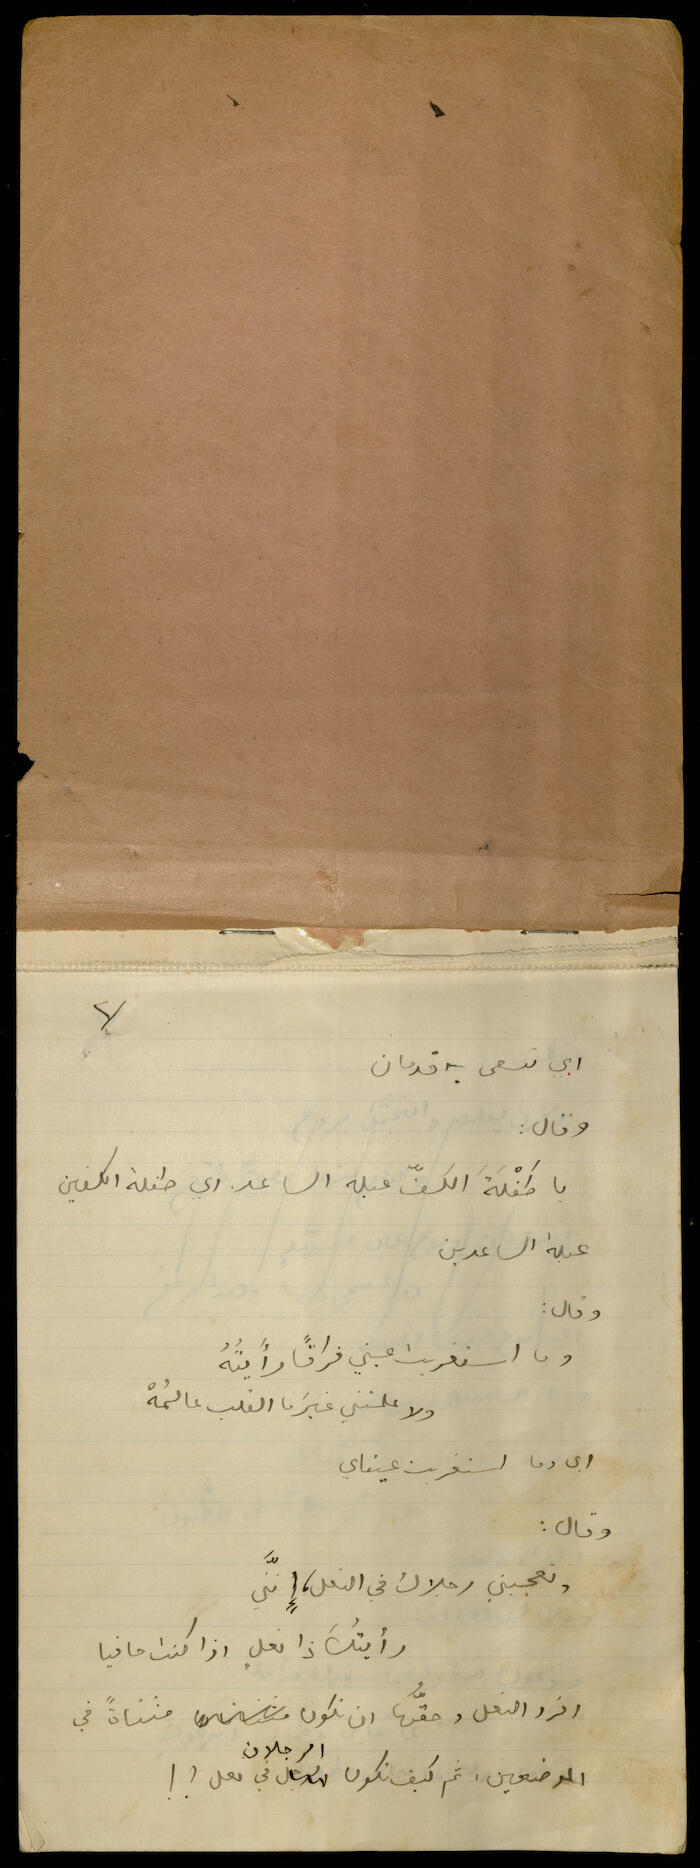 ٧
اي تسعى به قدمان
وقال:
يا طَفْلَةَ الكفّ عبلة الساعد. اي طفلة الكفين
عبلة الساعدين
وقال:
وما استغربت عيني فراقًا رأَيتُهُ
ولا علمتني غيرَ ما القلب عالمُهْ
اي وما استغربت عيناي
وقال:
وتعجبني رجلاك في النعل، إِنَّني
رأيتُكَ ذا نعلٍ اذا كنت حافيا
افرد النعل وحقُّها ان تكون مثناةً في
الموضعين، ثم كيف تكون الرجلان في نعل !!